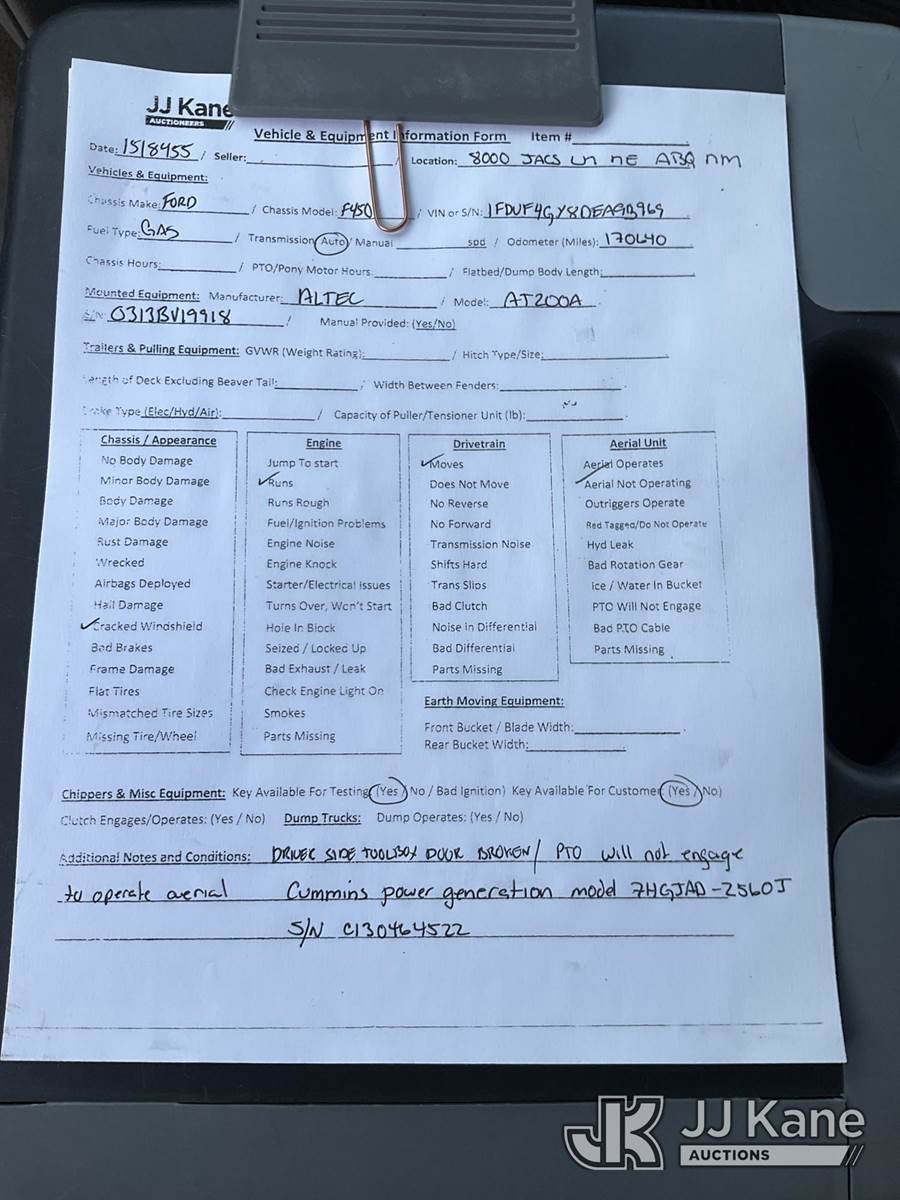 JJ Kane
AUCTIONEERS
Vehicle & Equipment Information Form Item #
Date: 1518455 / Seller: / Location: 8000 JACS LN NE ABQ NM
Vehicles & Equipment:
Chassis Make: FORD / Chassis Model: F450 / VIN or S/N: 1FDUF4GY8DEA93969
Fuel Type: GAS / Transmission Auto/ Manual spd / Odometer (Miles): 170640
Chassis Hours: / PTO/Pony Motor Hours: / Flatbed/Dump Body Length:
Mounted Equipment: Manufacturer: ALTEC / Model: AT200A
S/N: 0313BV19918 / Manual Provided: (Yes/No)
Trailers & Pulling Equipment: GVWR (Weight Rating): / Hitch Type/Size:
Length of Deck Excluding Beaver Tail: / Width Between Fenders:
Brake Type (Elec/Hyd/Air): / Capacity of Puller/Tensioner Unit (lb):
Chassis / Appearance
No Body Damage
Minor Body Damage
Body Damage
Major Body Damage
Rust Damage
Wrecked
Airbags Deployed
Hail Damage
✓Cracked Windshield
Bad Brakes
Frame Damage
Flat Tires
Mismatched Tire Sizes
Missing Tire/Wheel
Engine
Jump To start
✓Runs
Runs Rough
Fuel/Ignition Problems
Engine Noise
Engine Knock
Starter/Electrical issues
Turns Over, Won't Start
Hole In Block
Seized / Locked Up
Bad Exhaust / Leak
Check Engine Light On
Smokes
Parts Missing
Drivetrain
✓Moves
Does Not Move
No Reverse
No Forward
Transmission Noise
Shifts Hard
Trans Slips
Bad Clutch
Noise in Differential
Bad Differential
Parts Missing
Aerial Unit
Aerial Operates
✓Aerial Not Operating
Outriggers Operate
Red Tagged/Do Not Operate
Hyd Leak
Bad Rotation Gear
Ice / Water In Bucket
PTO Will Not Engage
Bad PTO Cable
Parts Missing
Earth Moving Equipment:
Front Bucket / Blade Width:
Rear Bucket Width:
Chippers & Misc Equipment: Key Available For Testing (Yes / No / Bad Ignition) Key Available For Customer: (Yes / No)
Clutch Engages/Operates: (Yes / No) Dump Trucks: Dump Operates: (Yes / No)
Additional Notes and Conditions: DRIVER SIDE TOOLBOX DOOR BROKEN/ PTO will not engage
to operate aerial Cummins power generation model 7HGJAD-2560J
S/N C130464522
JK JJ Kane
AUCTIONS